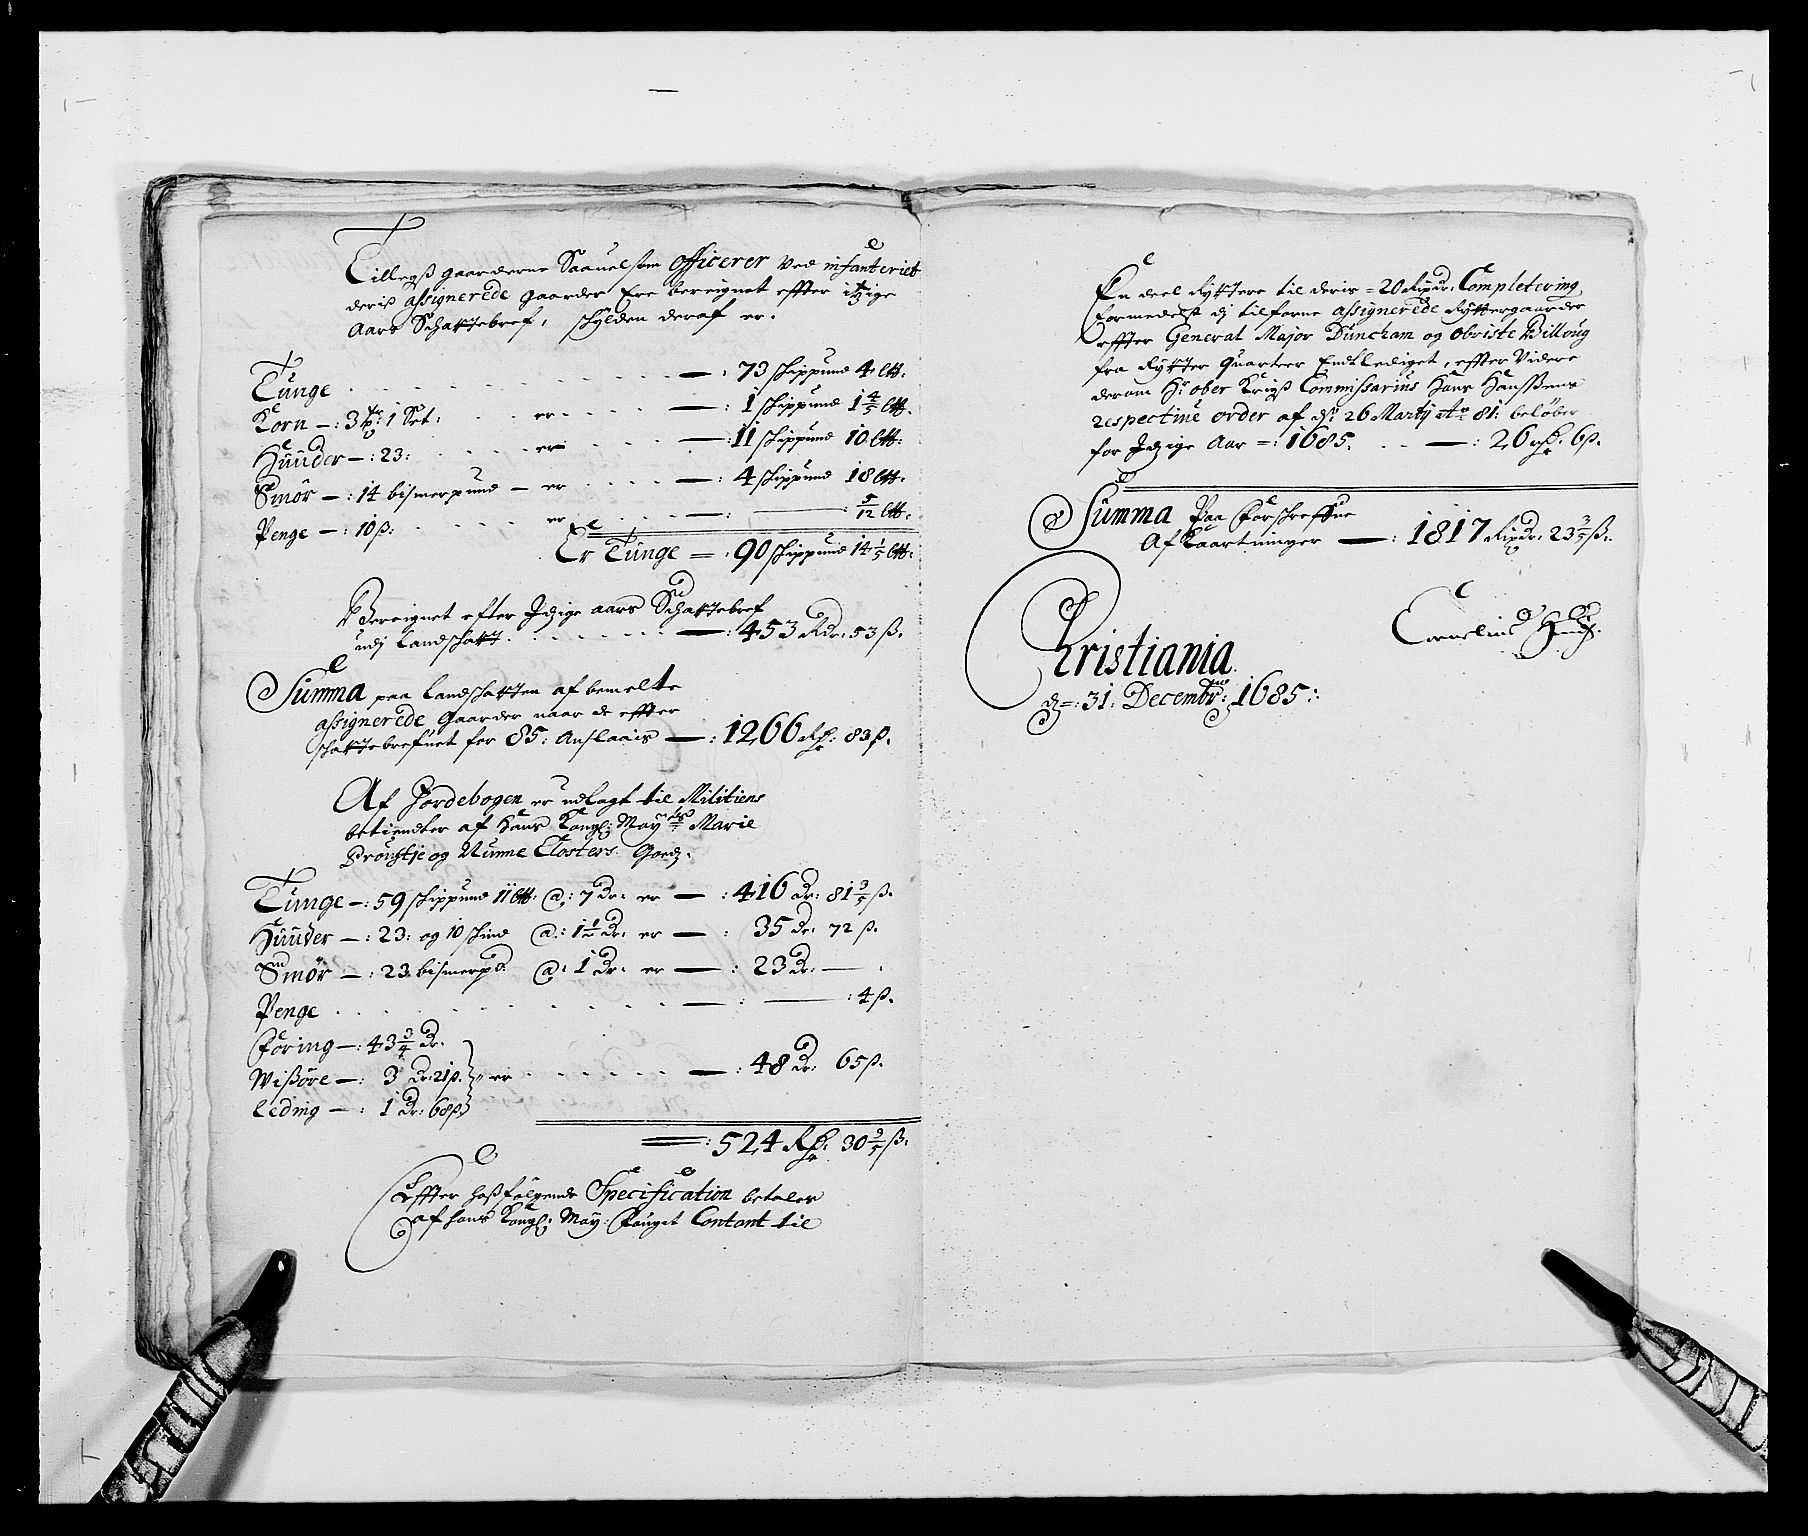 Tillegß gaarderne Saauelsom officerer ved infanteriet
deris assignerede gaarder Ere bereignet effter itzige
Aars Schattebref, schylden deraf er.
Tunge — : 73 schippund 4 ℔:
Korn —: 3 tr: 1 Set: er — : 1 schippund 1 4/5 ℔:
Huuder —: 23: er —: 11 schippund 10 ℔:
Smör —: 14 bismerpund — er — : 4 schippund 18 ℔:
Penge —: 10 ß: er — : — 5/12 ℔:
Er Tunge = : 90 schippund 14 1/5 ℔:
Bereignet efter Itzige aars Schattebref
udj Landschatt — : 453 Rdr: 53 ß.
Summa paa Landschatten af bemelte
assignerede Gaarder naar de effter
schattebrefuet for 85: Anslaais — : 1266 Rdr: 83 ß.
Af Jordebogen er udlagt til Militiens
betiendter af Hans Kongl: Mayts: Marie
Proustje og Nunne Closters Goedz.
Tunge —: 59 schippund 11 ℔: @: 7 Dr: er — : 416 Dr: 81 3/5 ß.
Huuder —: 23: og 10 schind @: 1 1/2 Dr: er — : 35 Dr: 72 ß.
Smör —: 23 bismerpd: @: 1 Dr: er — : 23 Dr: — :
Penge — : — : 4 ß.
Foring —: 43 3/4 Dr:
Wißöre —: 3 Dr: 21 ß. er — : 48 Dr: 65 ß.
Leding —: 1 Dr: 68 ß
= : 524 Rdr: 30 3/5 ß:
Effter hoßfölgende Specification betaler
af hans Kongl: May: Fouget Contant til
En deel Ryttere til deris = 20 Rixdr: Completering,
formedelst dj tilforne assignerede Ryttergaarde
effter General Major Duncham og obriste Billoug
fra Rytter Quarteer Endtlediget, effter Videre
derom Hr ober Krigß Commissarius Hans Hanssens
respective order af dn: 26 Martj Ao 81: beløber
for Itzige Aar =: 1685. — : 26 rdr: 6 ß.
Summa Paa Forschrefne
Afkaartninger — : 1817 Rixdr: 23 3/5 ß.
Christiania
d =: 31: Decembr: 1685:
Cornelius